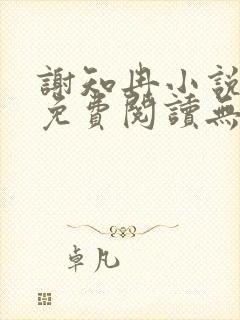 謝知冉小說
免費閱讀無
卓凡